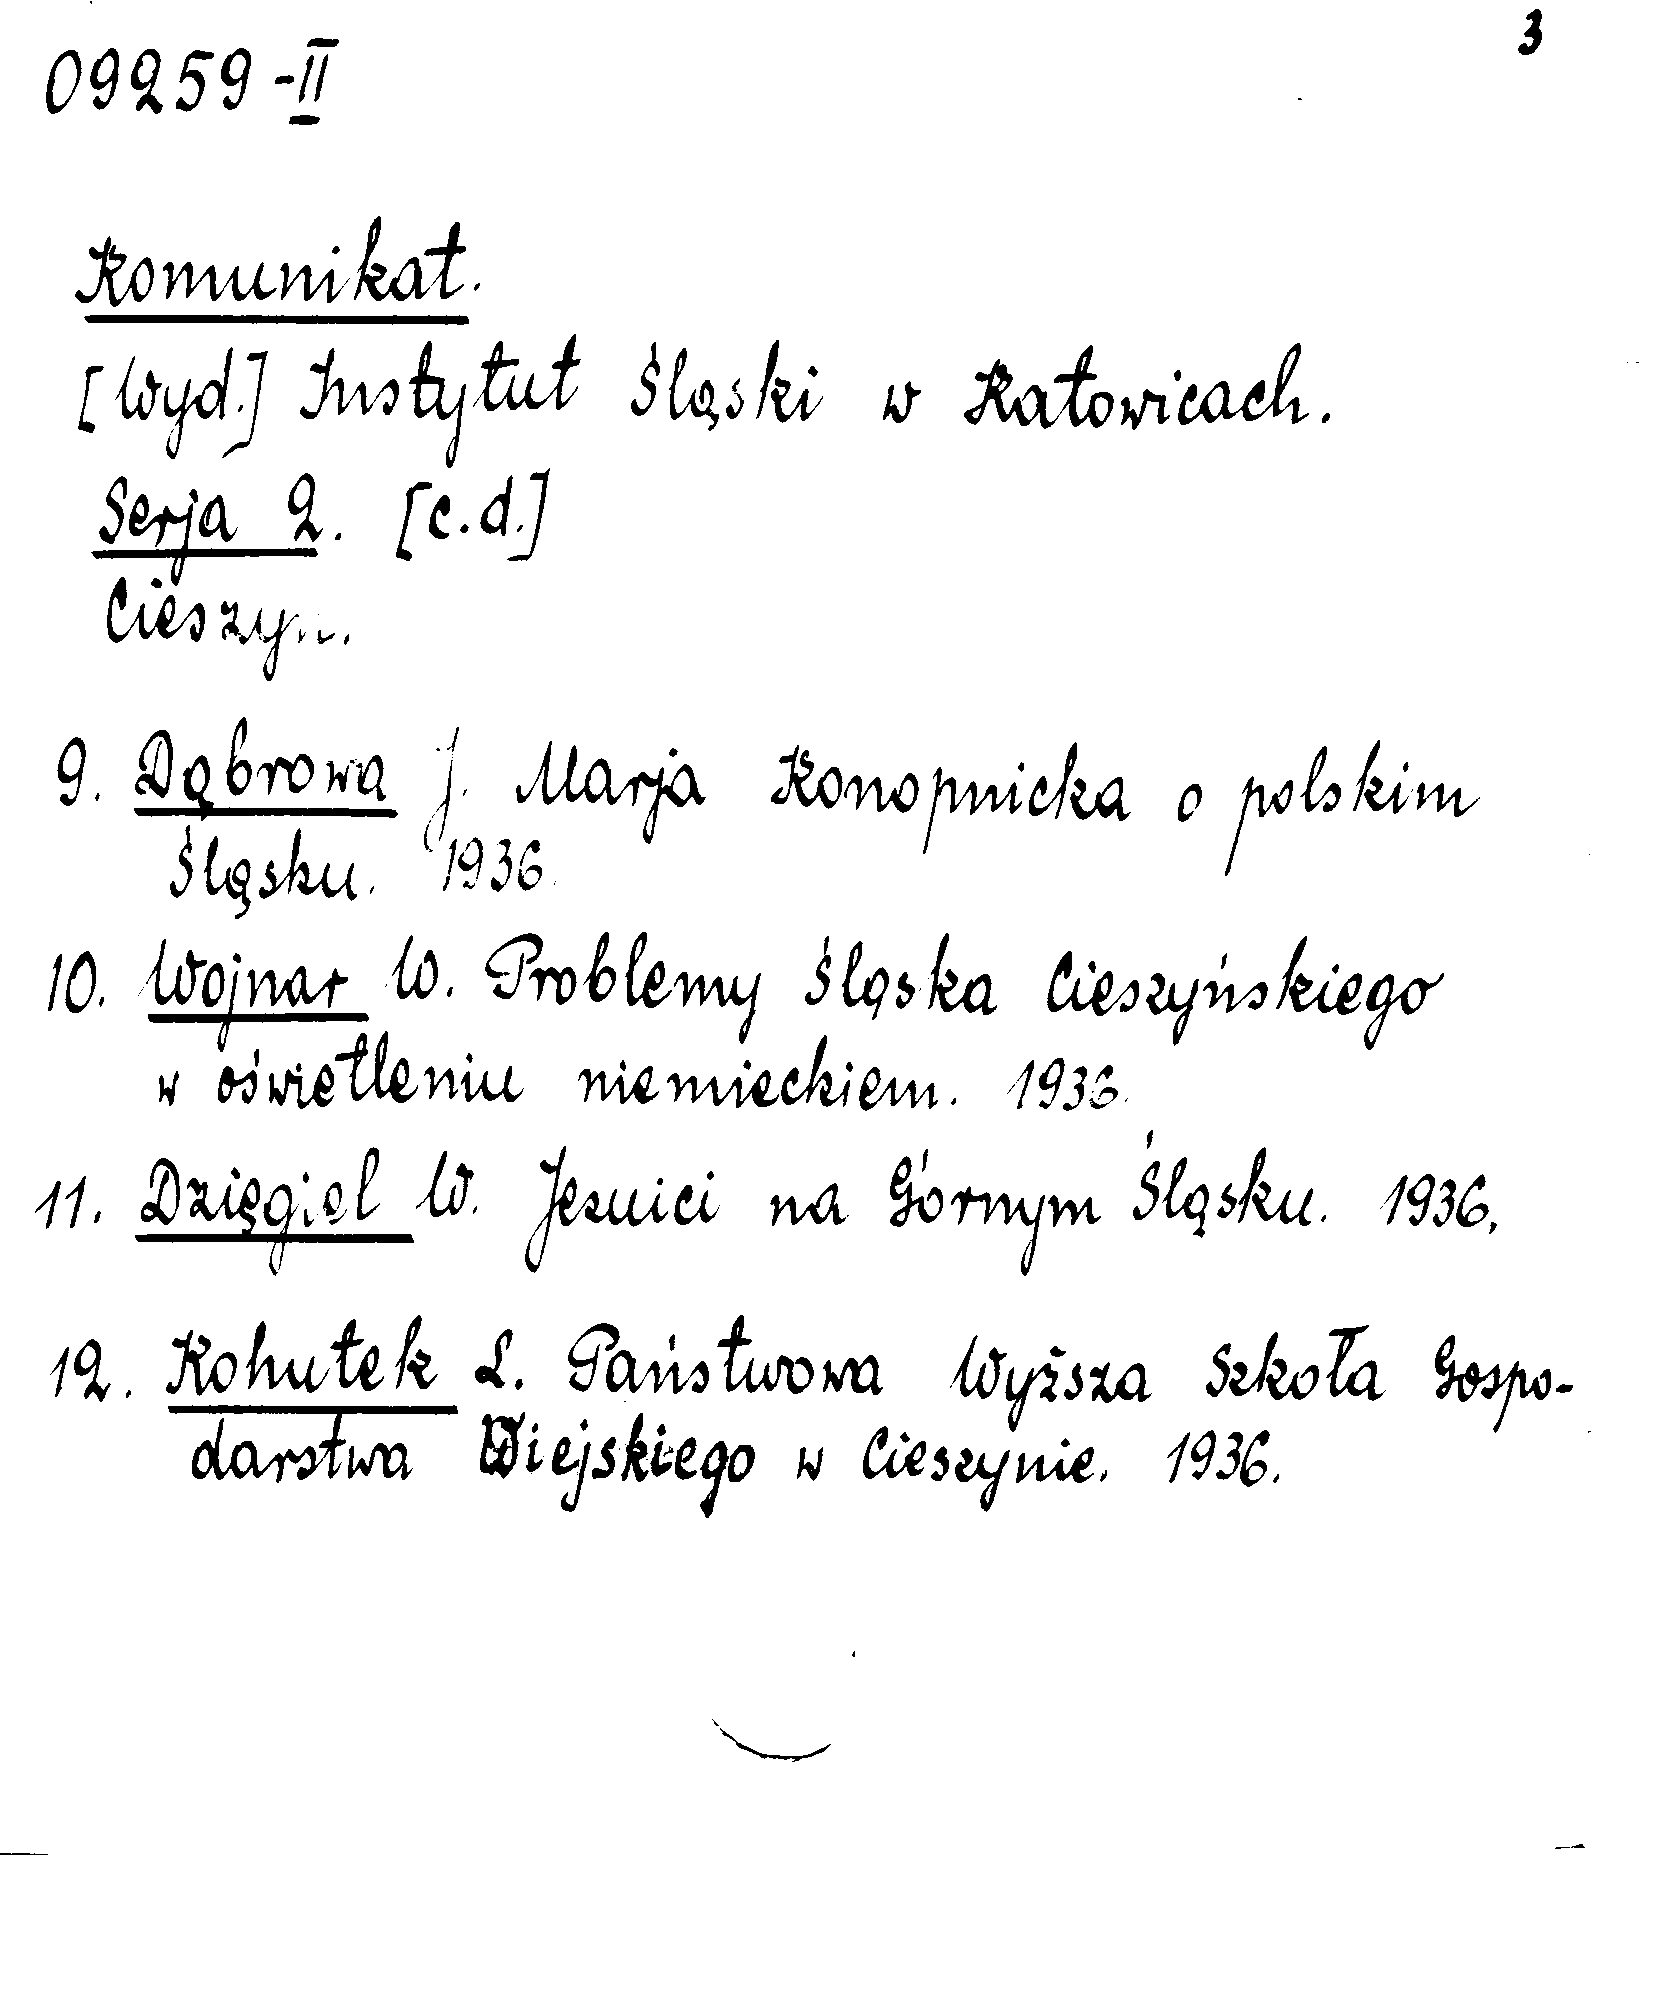 3
09259-II
Komunikat.
[Wyd.] Instytut Śląski w Katowicach.
Serja 2. [c.d.]
Cieszyn.
9. Dąbrowa J. Marja Konopnicka o polskim
Śląsku. 1936.
10. Wojnar W. Problemy Śląska Cieszyńskiego
w oświetleniu niemieckiem. 1936.
11. Dzięgiel W. Jezuici na Górnym Śląsku. 1936.
12. Kohutek L. Państwowa Wyższa Szkoła Gospo-
darstwa Wiejskiego w Cieszynie. 1936.